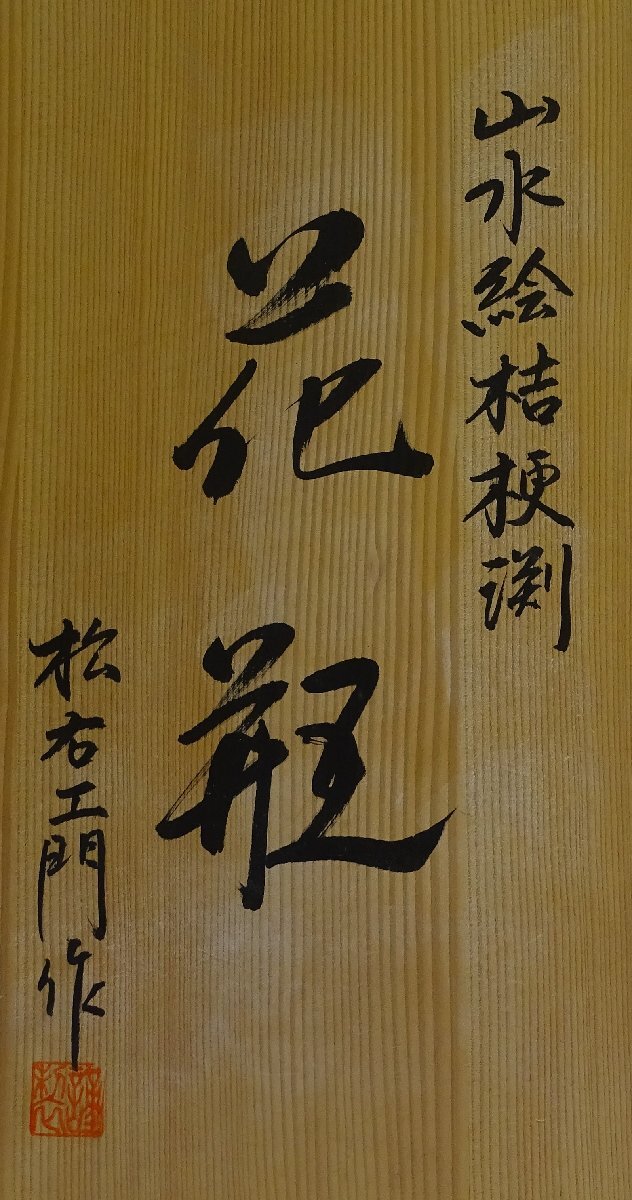 山水絵桔梗渕
花瓶
松右エ門作